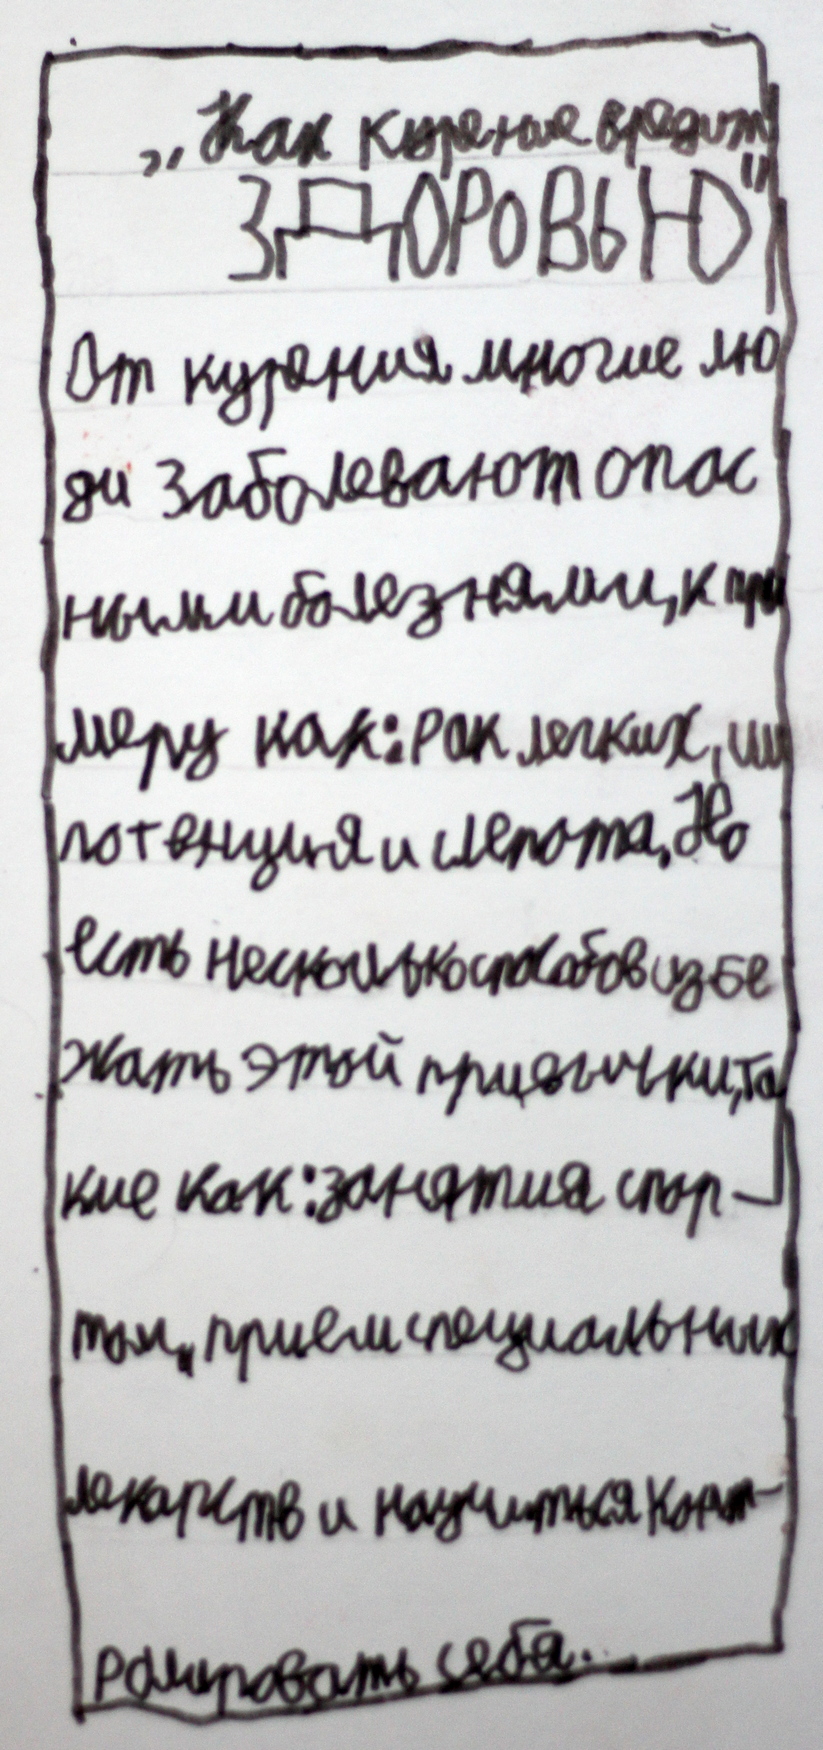 „Как курение вредит
ЗДОРОВЬЮ"
От курения многие лю
ди заболевают опас
ными болезнями, к при
меру как: рак легких, им
потенция и слепота. Но
есть несколько способов избе
жать этой привычки, та
кие как: занятия спор-
том, прием специальных
лекарств и научиться конт-
ролировать себя.